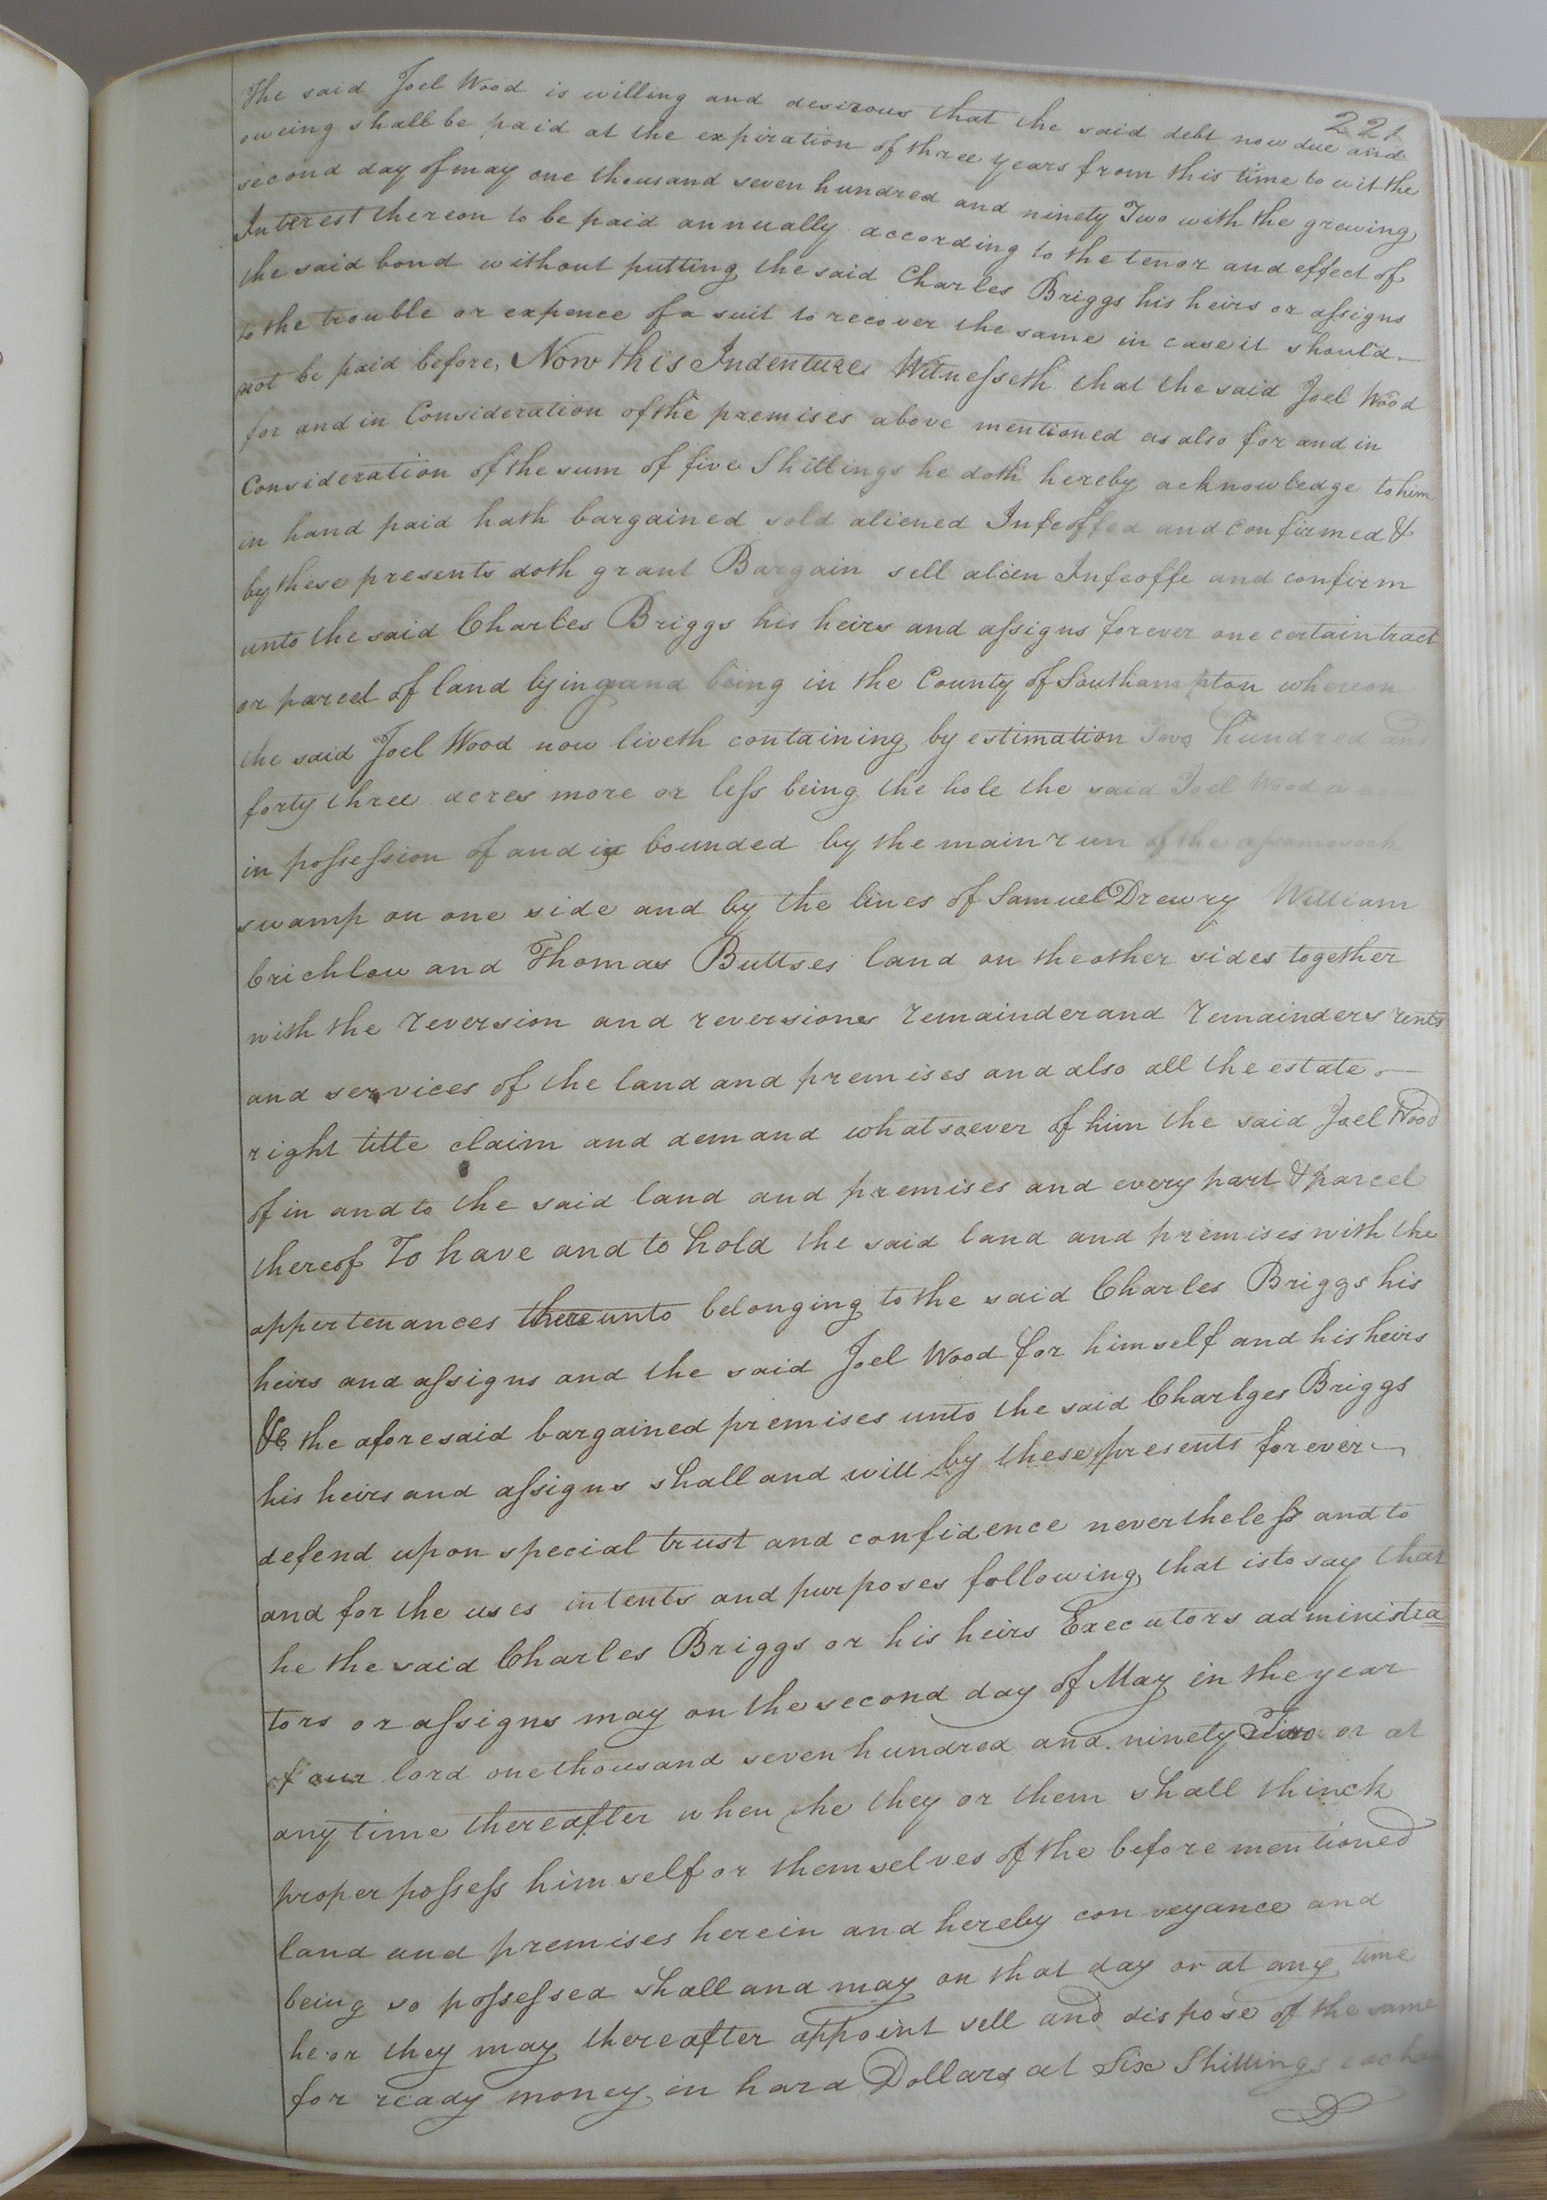 221
The said Joel Wood is willing and desirous that the said debt now due and
oweing shall be paid at the expiration of three years from this time to wit the
second day of may one thousand seven hundred and ninety Two with the growing
Interest thereon to be paid annually according to the tenor and effect of
the said bond without putting the said Charles Briggs his heirs or assigns
to the trouble or expence of a suit to recover the same in case it should
not be paid before, Now this Indenture Witnesseth that the said Joel Wood
for and in Consideration of the premises above mentioned as also for and in
Consideration of the sum of five Shillings he doth hereby acknowledge to him
in hand paid hath bargained sold aliened Infeoffed and confirmed &
by these presents doth grant Bargain sell alien Infeoffe and confirm
unto the said Charles Briggs his heirs and assigns forever one certain tract
or parcel of land lying and being in the County of Southampton whereon
the said Joel Wood now liveth containing by estimation Two hundred and
forty three acres more or less being the hole the said Joel Wood
in possession of and is bounded by the main run of the
swamp on one side and by the lines of Samuel Drewry William
Crichlow and Thomas Buttses land on the other sides together
with the reversion and reversions remainder and remainders rents
and services of the land and premises and also all the estate
right title claim and demand whatsoever of him the said Joel Wood
of in and to the said land and premises and every part & parcel
thereof To have and to hold the said land and premises with the
appertenances thereunto belonging to the said Charles Briggs his
heirs and assigns and the said Joel Wood for himself and his heirs
&c the aforesaid bargained premises unto the said Charlges Briggs
his heirs and assigns shall and will by these presents forever
defend upon special trust and confidence nevertheless and to
and for the uses intents and purposes following that is to say that
he the said Charles Briggs or his heirs Executors administra
tors or assigns may on the second day of May in the year
of our lord one thousand seven hundred and ninety Two or at
any time thereafter when he they or them shall thinck
proper possess himself or themselves of the before mentioned
land and premises herein and hereby conveyance and
being so possessed shall and may on that day or at any time
he or they may thereafter appoint sell and dispose of the same
for ready money in hard Dollars at Six Shillings each